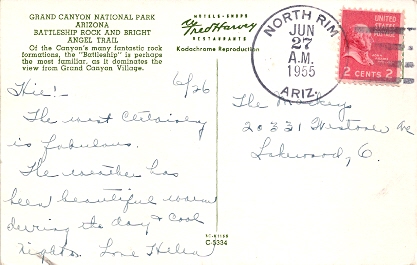 GRAND CANYON NATIONAL PARK
ARIZONA
BATTLESHIP ROCK AND BRIGHT
ANGEL TRAIL
Of the Canyon's many fantastic rock
formations, the "Battleship" is perhaps
the most familiar, as it dominates the
view from Grand Canyon Village.
HOTELS-SHOPS
Fred Harvey
RESTAURANTS
Kodachrome Reproduction
NORTH RIM
JUN
27
A.M.
1955
ARIZ.
UNITED
STATES
2 CENTS 2
6/26
Hie!-
The west certainly
is fabulous.
The weather has
been beautiful warm
during the day & cool
nights. Love Helen
The
20331 Westover Ave
Lakewood, O.
C-5334